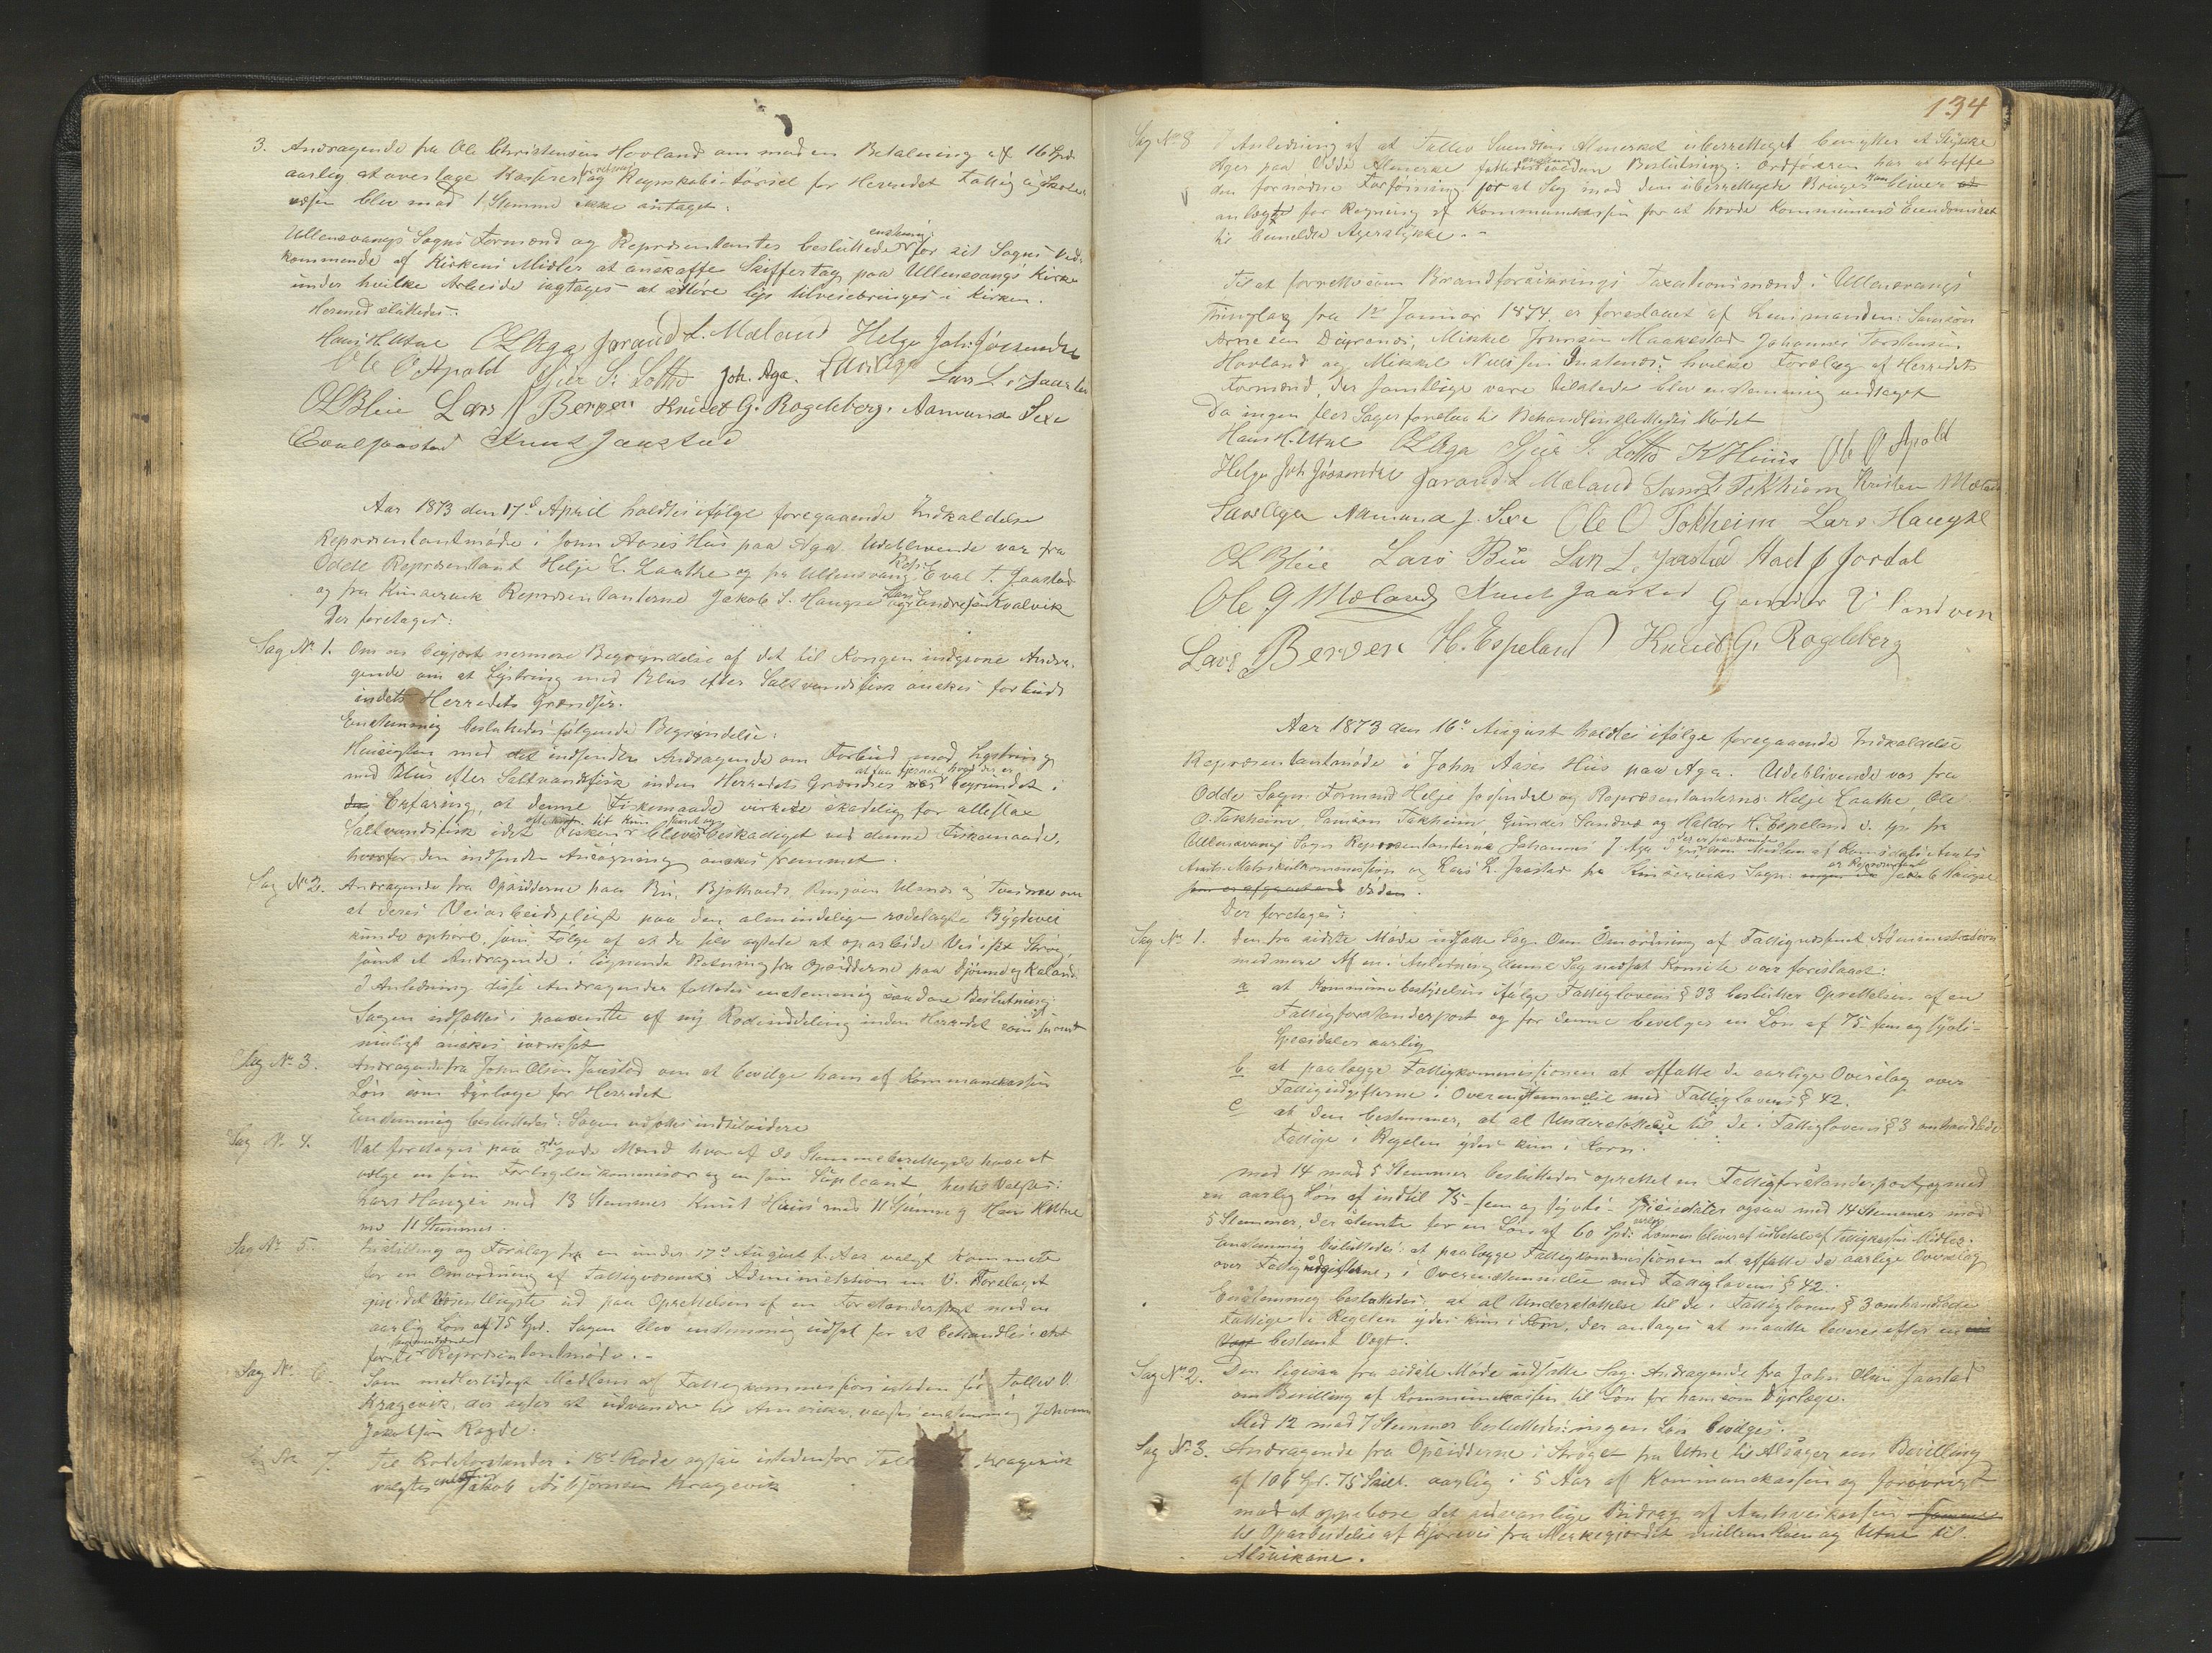 3. Andragende fra Ole Christensen Hovland om mod en Betaling af 16 Spd.
aarlig at overtage Kasserer og Regnskabsførsel for Herredet Fattig og Skole-
væsen blev mod 1 Stemme ikke antaget.
Ullensvangs Sogns Formænd og Repræsentanter besluttede enstemmig for sit Sogns Ved-
kommende af Kirkens Midler at anskaffe Skiffertag paa Ullensvangs Kirke
under hvilke Arbeide iagtages at større lys tilveiebringes i Kirken.
Hermed sluttedes.
Hans H. Utne O L Aga Jorand L. Mæland Helge Joh. Jøssendal
Ole O Apold Sjur S. Lotthe Joh. Aga. Lars Aga Lars L. Jaastad
O L Bleie Lars Berven Knud G. Rogdeberg. Aamund Sexe
Eval Jaastad Knut Jaastad
Aar 1873 den 17d April holdtes ifølge foregaaende Indkaldelse
Repræsentantmøde i John Aases Hus paa Aga. Udeblivende var fra
Odde Repræsentant Helje L. Laathe og fra Ullensvang Rep. Eval T. Jaastad
og fra Kinservik Repræsentanterne Jakob S. Haugse og Lars Endresen Kvalvik
Der foretoges:
Sag No 1. Om en begjært nærmere Begrundelse af det til Kongen indgivne Andra-
gende om at Lystring med Blus efter Saltvandsfisk ønskes forbudt
indets Herredets Grændser.
Enstemmig besluttedes følgende Begrundelse:
Hensigten med det indsendte Andragende om Forbud mod Lystring
med Blus efter Saltvandsfisk inden Herredets Grændser at faa fjernet, hvad der er begrundet i
Erfaring, at denne Fiskemaade virkede skadelig for alleslae
Saltvandsfisk idet Fisken blives beskadiget ved denne Fiskemaade,
hvorfor den indsendte Ansøgning ønskes fremmet.
Sag No 2. Andragende fra Opsidderne paa Bu, Bjotveit, Ringøen Ulands og Tveisme om
at deres Veiarbeidspligt paa den almindelige rodelagte Bygdevei
kunde ophøre, som Følge af at de selv agtede at oparbeide Vei
samt et Andragende i lignende Retning fra Opsidderne paa Djønne og Kaland.
I Anledning disse Andragender fattedes enstemmig saadan Beslutning:
Sagen udsættes i paavente af ny Rodeinddeling inden Herredet som snarest
muligt ønskes iværksat
Sag No 3. Andragende fra John Olsen Jaastad om at bevilge ham af Kommunekassen
Løn som Dyrlæge for Herredet
Enstemmig besluttedes: Sagen udsættes indtilvidere
Sag No 4. Val foretoges paa 3de gode Mænd hvoraf de Stemmeberettigede have at
vælge en som Forligelseskommisær og en som Supleant hertil valgtes:
Lars Haugse med 13 Stemmer Knut Huus med 11 Stemme og Hans H Utne
med 11 Stemmer.
Sag No 5. Indstilling og Forslag fra en under 17d August f. Aar valgt Kommite
for en Omordning af Fattigvæsenets Administration m. v. Forslaget
gik det væsentligste ud paa Oprettelsen af en Forstanderpost med en
aarlig Løn af 75 Spd. Sagen blev enstemmig udsat for at behandles i det
første Repræsentantmøde.
Sag No 6. Som medlertidigt Medlem af Fattigkommissionen isteden for Tollev V
Kragevik, der agter at udvandre til Amerika, valgtes enstemmig Johannes
Jakobsen Ragde.
Sag No 7. Til Rodeforstander i 18d Rode ogsaa istedenfor Kragevik
valgtes enstemmig Jakob Asbjørnsen Kragevik
134
Sag No 8 I Anledning af at Tollev Svendsen Almerket uberettiget benytter et Stykke
Ager paa Odde Almerke fattedes enstemmig saadan Beslutning: Ordføreren har at treffe
den fornødne Forføining for at Sag mod den uberettigede Bruger kan bliver
anlagte for Regning af Kommunekassen for at hævde Kommunens Eiendomsret
til bemeldte Agerstykke.-
Til at forrette som Brandforsikrings Taxationsmænd i Ullensvangs
Tinglag fra 1te Januar 1874, er foreslaaet af Lensmanden: Samson
Arnesen Digranæs, Mikkel Jonsen Maakestad Johannes Torstensen
Hovland og Mikkel Nielssen hvilke Forslag af Herredets
Formænd, der samtlige vare tilstede blev enstemmig vedtaget
Da ingen fler Sager forelaa til Behandling sluttedes Mødet
Hans H. Utne O L Aga Sjur S. Lotthe K Huus Ole O Apold
Helge Joh Jøssendal Jorand L Mæland Sams. Tokheim Kristen Mæland
Lars Aga Aamund J. Sexe Ole O Tokheim Lars Haugse
O L Bleie Lars Bu Lars L. Jaastad Hoel J Jordal
Ole G Mæland Knut Jaastad Gunder Sandven
Lars Berven H. Espeland Knud G. Rogdeberg
Aar 1873 den 16d August holdtes ifølge foregaaende Indkaldelse
Repræsentantmøde i John Aases Hus paa Aga. Udeblivende var fra
Odde Sogn Formand Helje Jøsendal og Repræsentanterne Helje Laathe, Ole
O. Tokheim Samson Tokheim Gunder Sandve og Haldor H. Espeland d. y. fra
Ullensvangs Sogn Repræsentanterne Johannes J. Aga der er fraværende som Medlem af
Amts Matrikulkommission og Lars L. Jaastad fra Kinserviks Sogn:
som er afgaaet ved Døden.
Der foretoges:
Sag No 1. Den fra sidste Møde udsatte Sag. Om Omordning af Fattigvæsenet Administration
med mere Af en i Anledning denne Sag nedsat Komite var foreslaaet:
a at Kommunebestyrelsen ifølge Fattiglovens § 33 beslutter Oprettelsen af en
Fattigforstanderpost og for denne bevilges en Løn af 75 fem og sytti-
Speciedaler aarlig
b. at paalægge Fattigkommissionen at affatte de aarlige Overslag over
Fattigudgifterne i Overensstemmelse med Fattiglovens § 42.
c at den bestemmer, at al Understøttelse til de i Fattiglovens § 3 omhandlede
Fattige i Regelen yder kun i Korn.
med 14 mod 5 Stemmer besluttedes oprettet en Fattigforstanderpost, og med
en aarlig Løn af indtil 75 - fem og sytti - Speciedaler ogsaa med 14 Stemmer mod
5 Stemmer, der stemte for en Løn af 60 Spd. Lønnen bliver at udbetale af Fattigkassens Midler.
Enstemmig besluttedes: at paalægge Fattigkommissionen at affatte de aarlige Overslag
over Fattigudgifterne, i Overensstemmelse med Fattiglovens § 42.
Enstemmig besluttedes, at al Understøttelse til de i Fattiglovens § 3 omhandlede
Fattige i Regelen yder kun i Korn, der antages at maatte leveres efter en
Vægt bestemt Vægt.
Sag No 2. Den ligesaa fra sidste Møde udsatte Sag. Andragende fra John Olsen Jaastad
om Bevilling af Kommunekassen til Løn for ham som Dyrlæge.
Med 12 mod 7 Stemmer besluttedes: ingen Løn bevilges.
Sag No 3. Andragende fra Opsidderne i Strøget fra Utne til Alsager om Bevilling
af 106 Spd. 75 Skill. aarlig i 5 Aar af Kommunekassen og forøvrigt
mod at oppebære det Bidrag af Amtsveikassen
til Oparbeidelse af Kjørevei fra Merkegjerdet mellem og Utne til
Alsvikane.